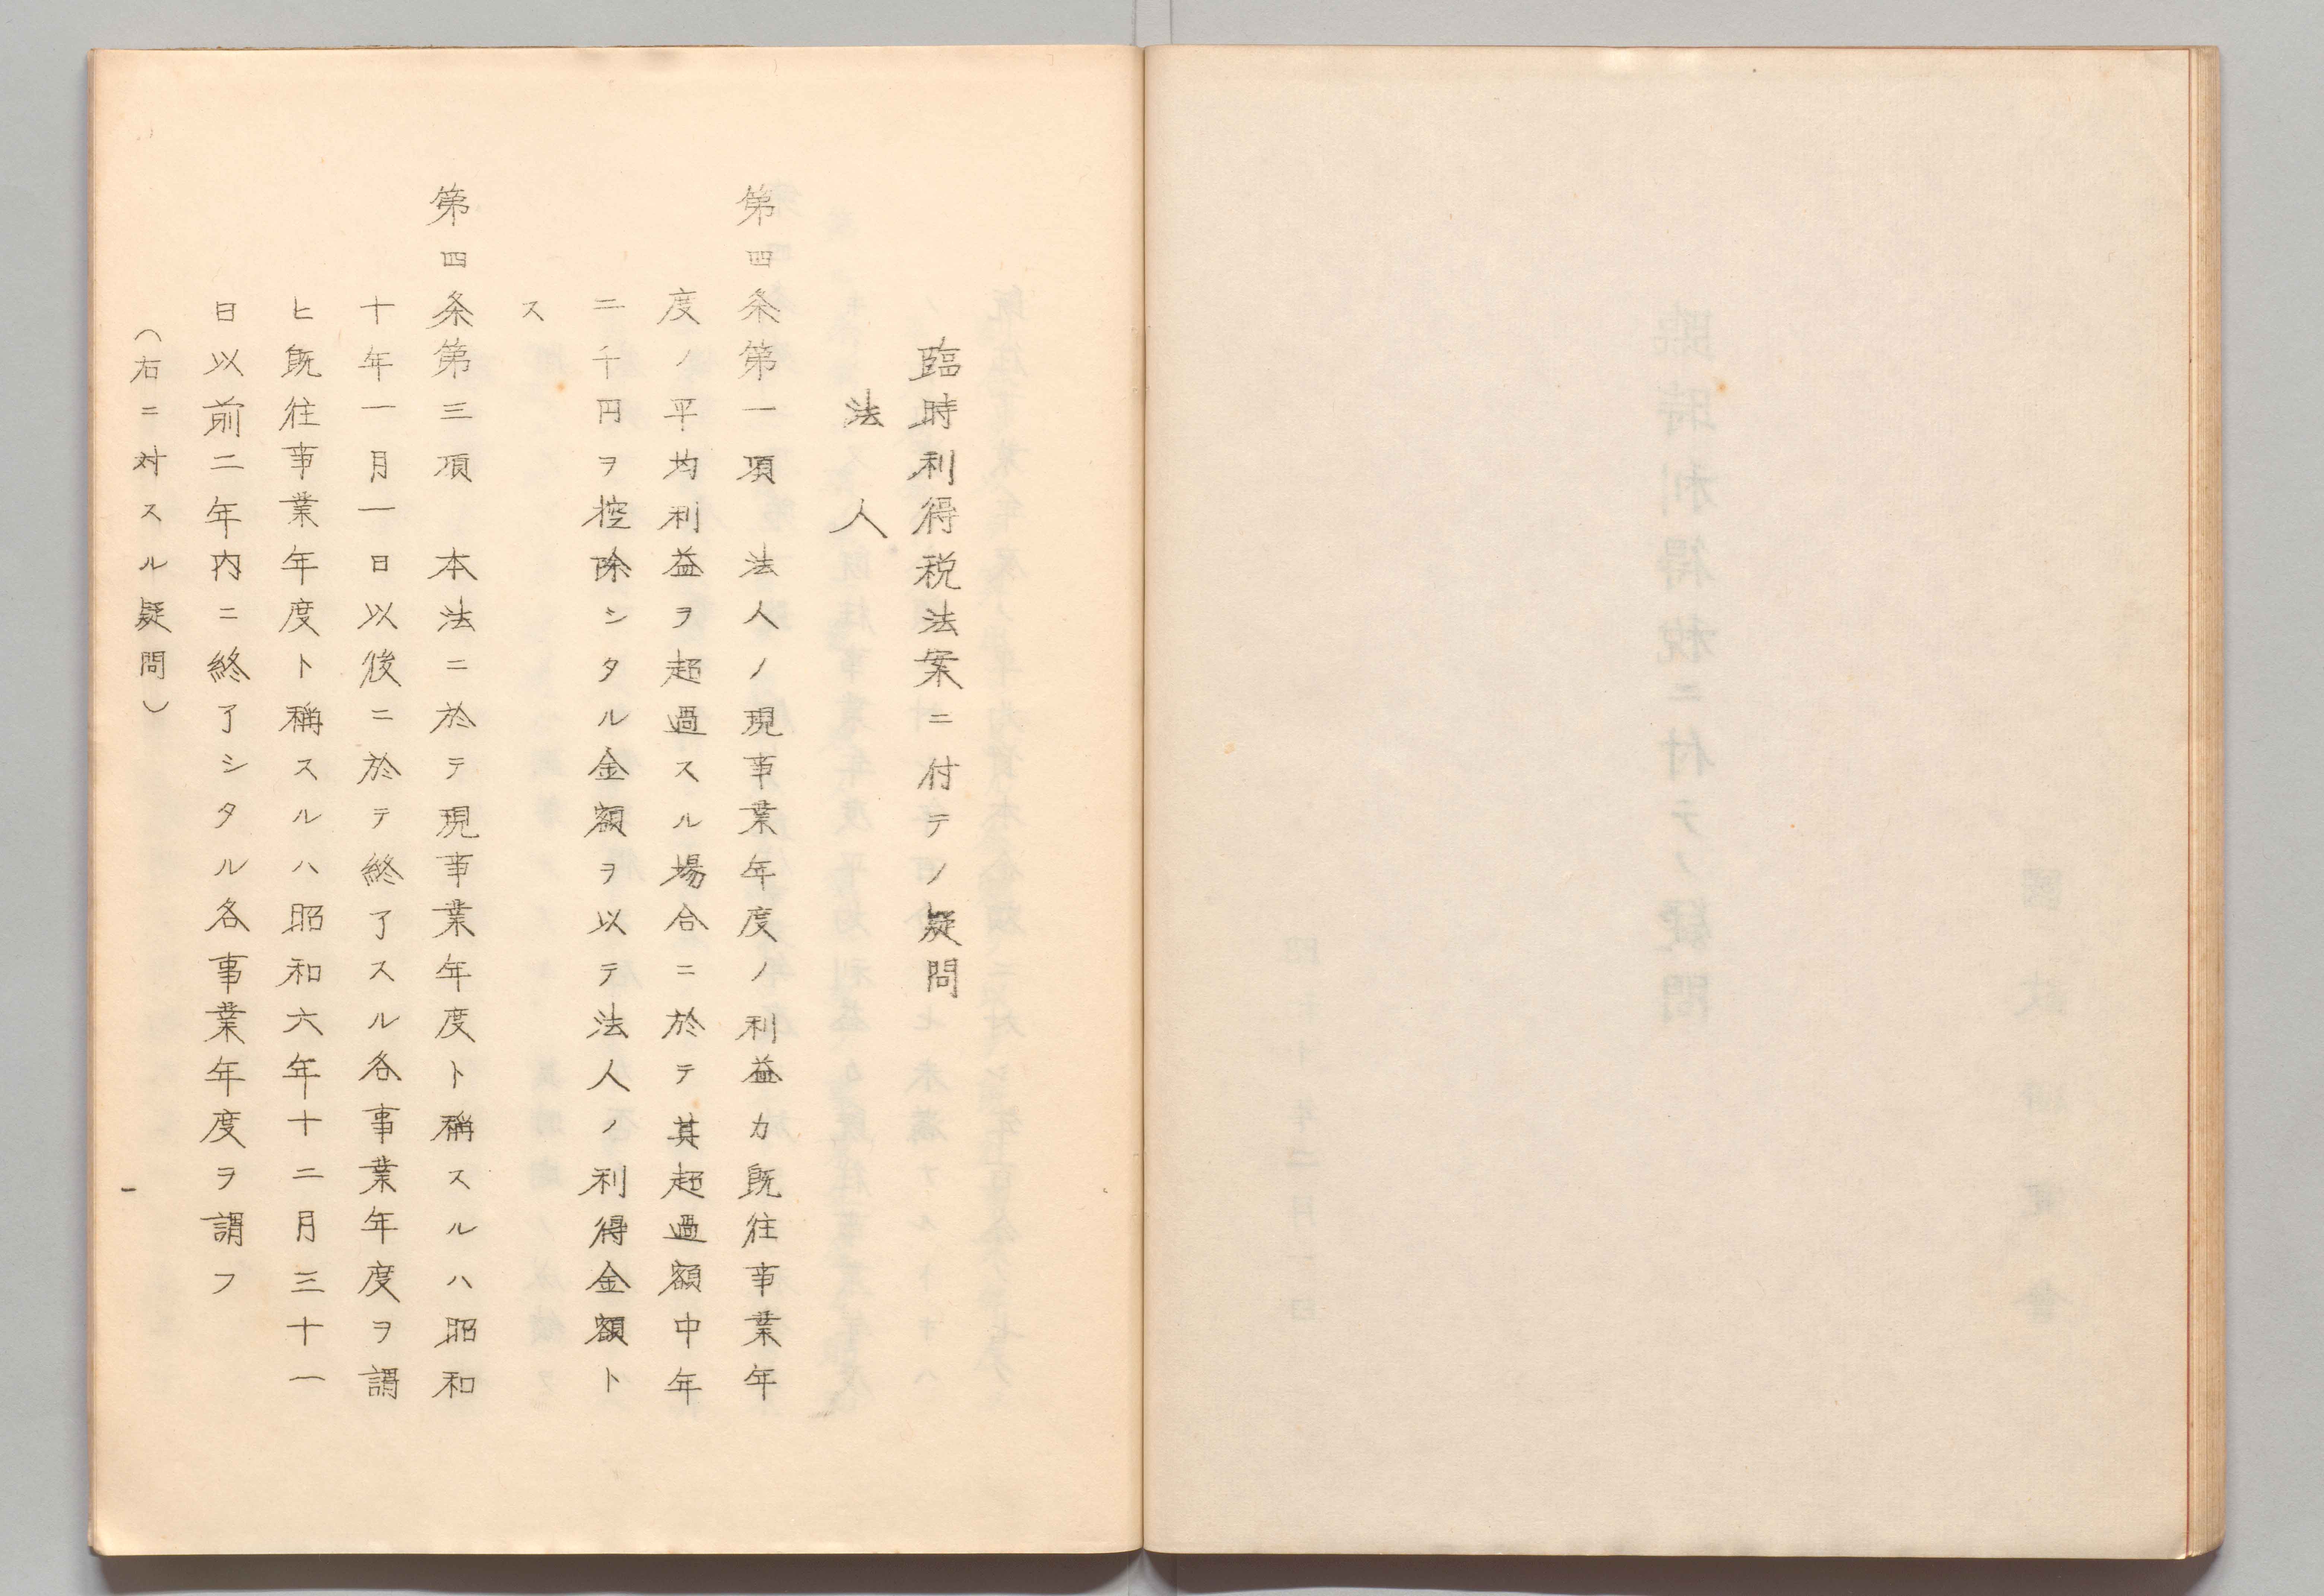 臨時利得税法案ニ付テノ疑問
法人
第四条第一項　法人ノ現事業年度ノ利益カ既往事業年
度ノ平均利益ヲ超過スル場合ニ於テ其超過額中年
二千円ヲ控除シタル金額ヲ以テ法人ノ利得金額ト
ス
第四条第三項　本法ニ於テ現事業年度ト稱スルハ昭和
十年一月一日以後ニ於テ終了スル各事業年度ヲ謂
ヒ既往事業年度ト稱スルハ昭和六年十二月三十一
日以前二年内ニ終了シタル各事業年度ヲ謂フ
（右ニ対スル疑問）
一